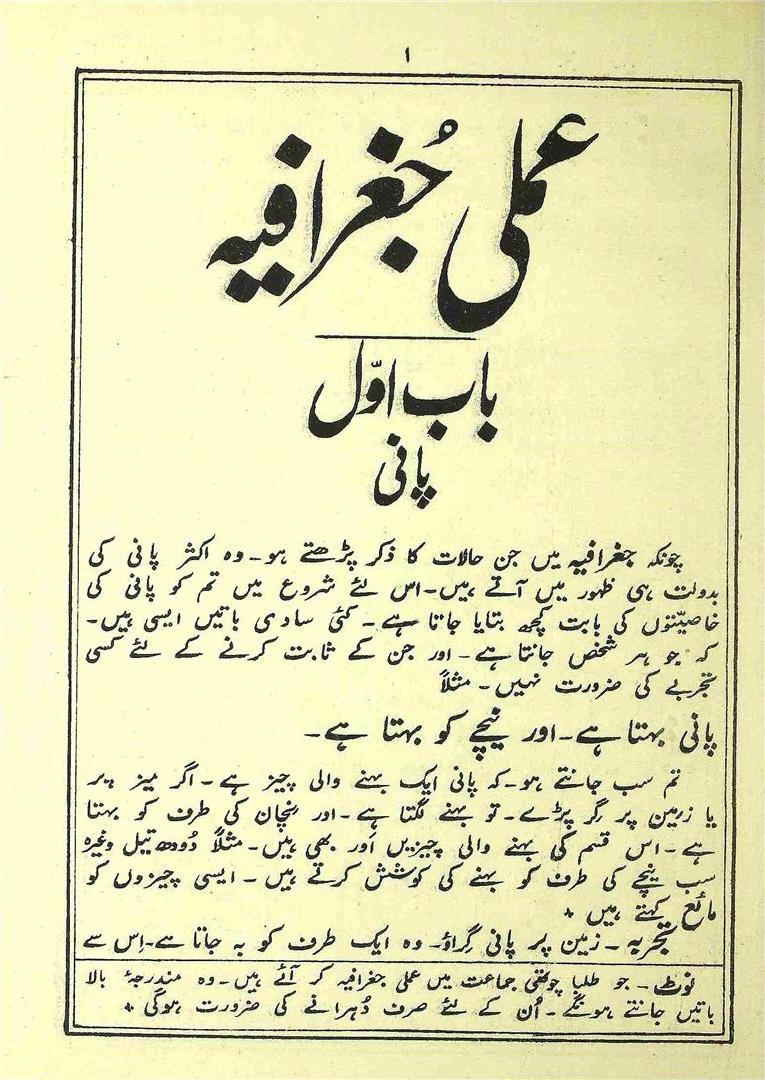 ۱
عملی جُغرافیہ
باب اوّل
پانی
چونکہ جغرافیہ میں جن حالات کا ذکر پڑھتے ہو۔ وہ اکثر پانی کی
بدولت ہی ظہور میں آتے ہیں۔ اس لئے شروع میں تم کو پانی کی
خاصیّتوں کی بابت کچھ بتایا جاتا ہے۔ کئی سادی باتیں ایسی ہیں۔
کہ جو ہر شخص جانتا ہے۔ اور جن کے ثابت کرنے کے لئے کسی
تجربے کی ضرورت نہیں۔ مثلاً
پانی بہتا ہے۔ اور نیچے کو بہتا ہے۔
تم سب جانتے ہو۔ کہ پانی ایک بہنے والی چیز ہے۔ اگر میز پر
یا زمین پر گر پڑے۔ تو بہنے لگتا ہے۔ اور نچان کی طرف کو بہتا
ہے۔ اس قسم کی بہنے والی چیزیں اَور بھی ہیں۔ مثلاً دُودھ تیل وغیرہ
سب نیچے کی طرف کو بہنے کی کوشش کرتے ہیں۔ ایسی چیزوں کو
مائع کہتے ہیں *
تجربہ۔ زمین پر پانی گِراؤ۔ وہ ایک طرف کو بہ جاتا ہے۔ اِس سے
نوٹ۔ جو طلبا چوتھی جماعت میں عملی جغرافیہ کر آئے ہیں۔ وہ مندرجۂ بالا
باتیں جانتے ہونگے۔ اُن کے لئے صرف دُہرانے کی ضرورت ہوگی *